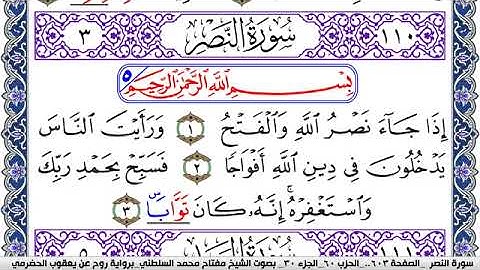 ١١٠ سُورَةُ النَّصْرِ ٣
بِسْمِ اللَّهِ الرَّحْمَٰنِ الرَّحِيمِ
إِذَا جَآءَ نَصْرُ اللَّهِ وَالْفَتْحُ ١ وَرَأَيْتَ النَّاسَ
يَدْخُلُونَ فِي دِينِ اللَّهِ أَفْوَاجًا ٢ فَسَبِّحْ بِحَمْدِ رَبِّكَ
وَاسْتَغْفِرْهُ ۚ إِنَّهُ كَانَ تَوَّابًا ٣
١١١ ٥
سورة النصر _ الصفحة ٦٠٣ _ الحزب ٦٠ _ الجزء ٣٠ _ بصوت الشيخ مفتاح محمد السلطني _ برواية روح عن يعقوب الحضرمي